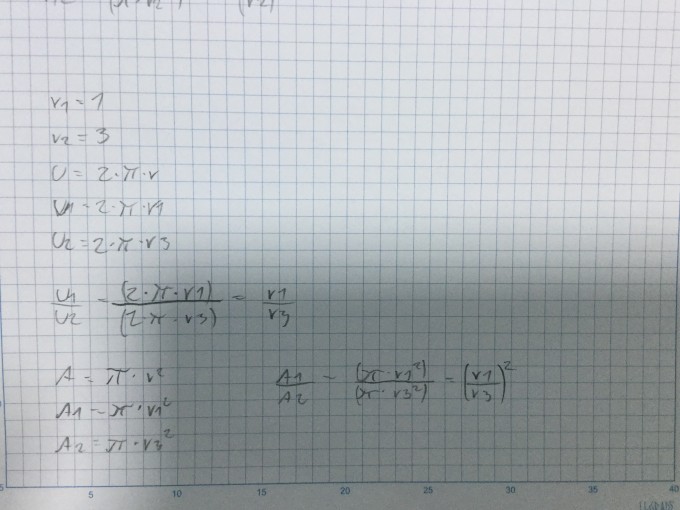 r1 = 1
r2 = 3
U = 2·π·r
U1 = 2·π·r1
U2 = 2·π·r3
U1/U2 = (2·π·r1)/(2·π·r3) = r1/r3
A = π·r²
A1 = π·r1²
A2 = π·r3²
A1/A2 = (π·r1²)/(π·r3²) = (r1/r3)²
5 5 10 15 20 25 30 35 40